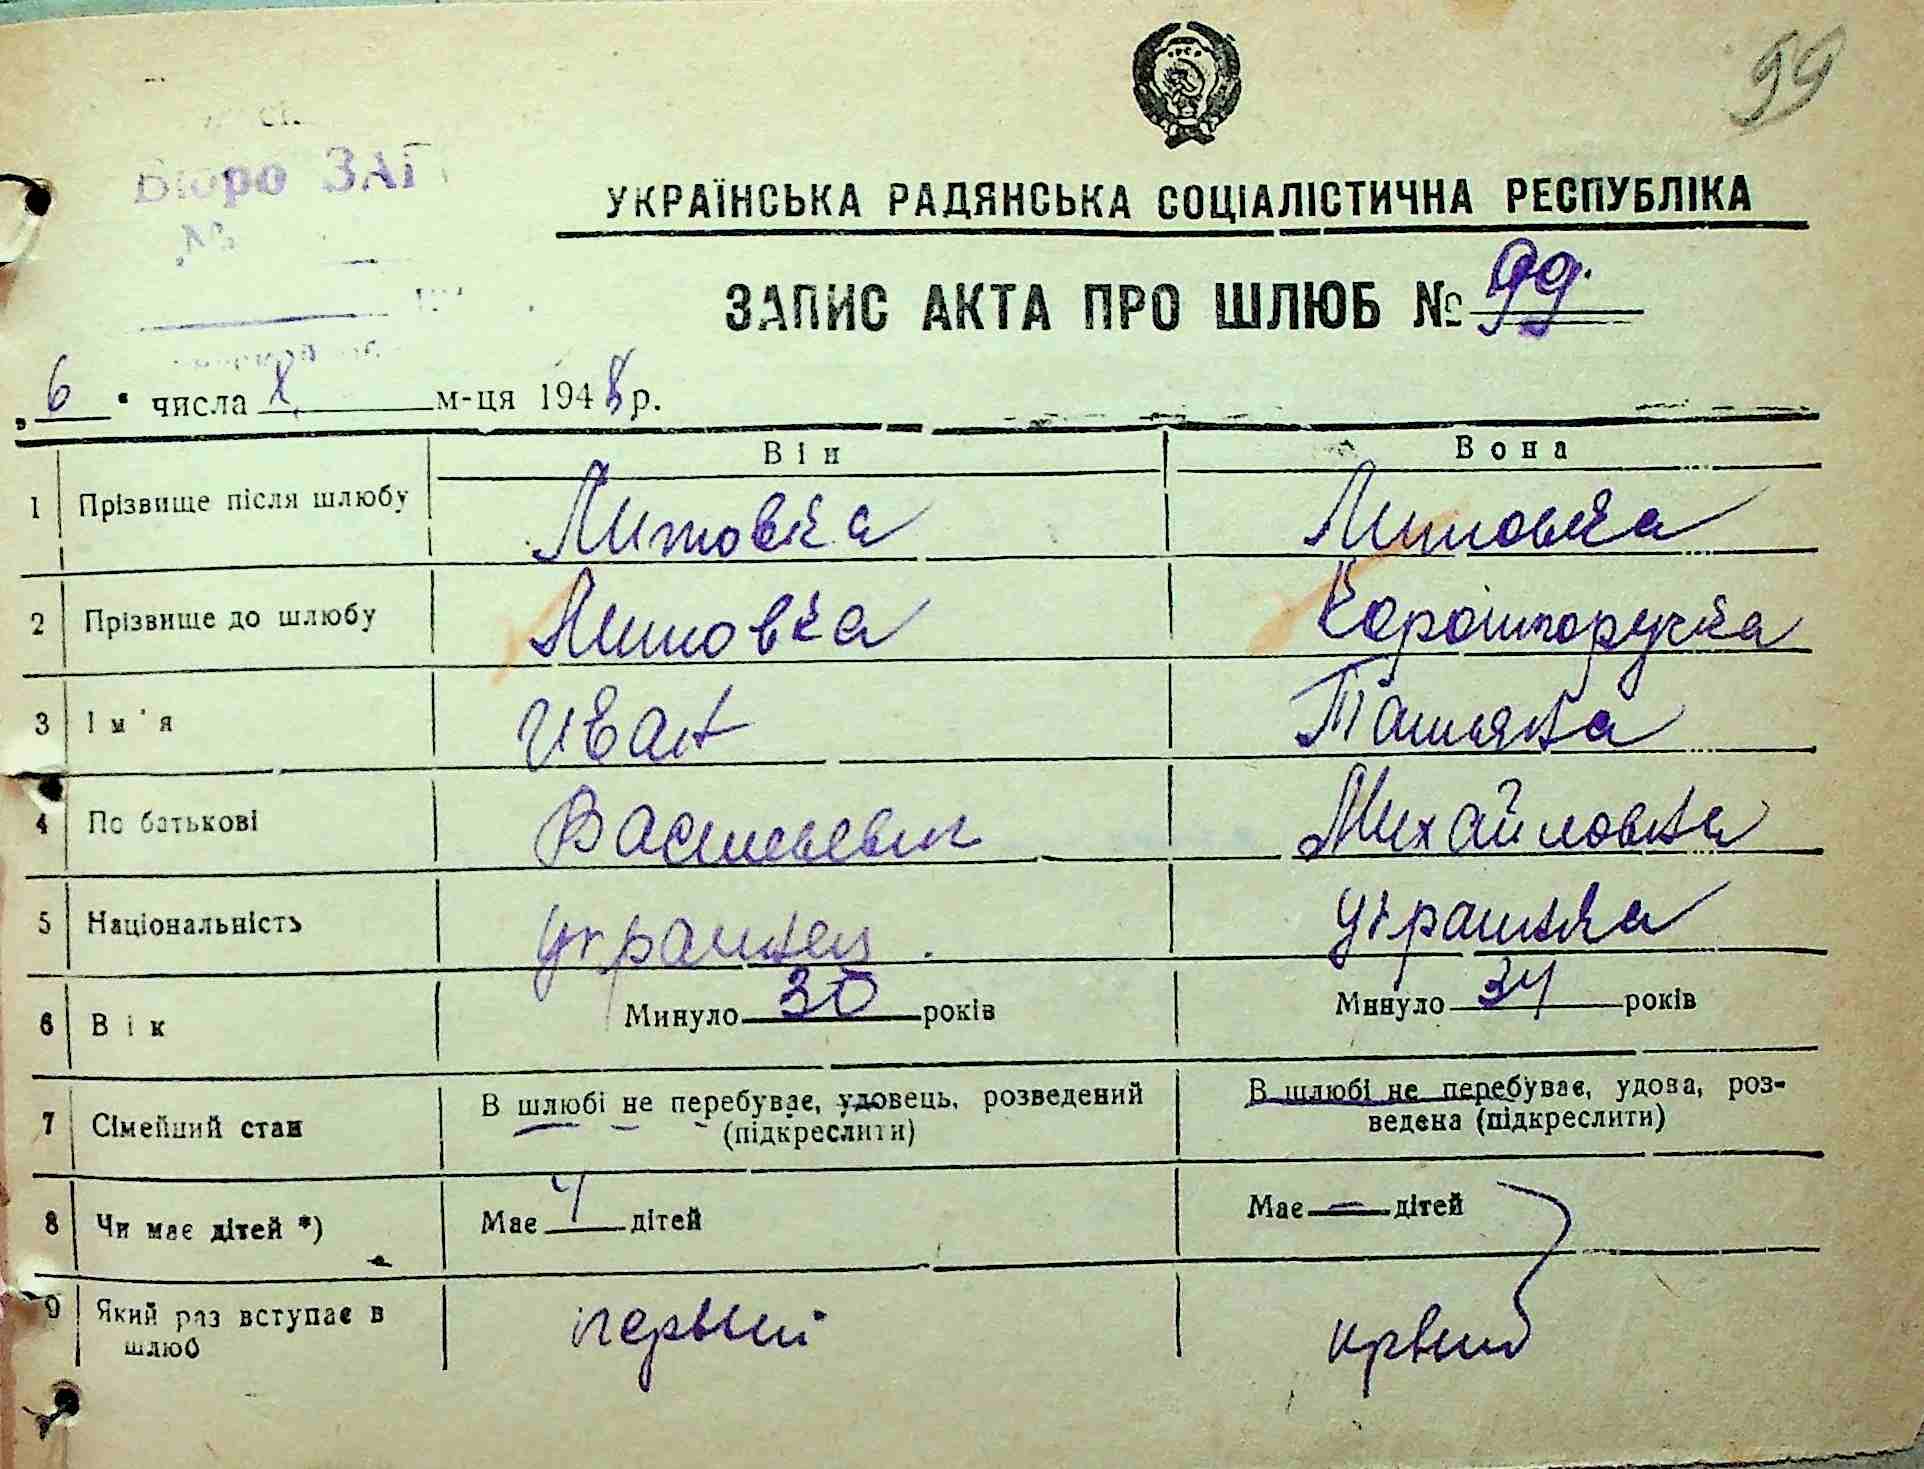 99
Бюро ЗАГ
№
УКРАЇНСЬКА РАДЯНСЬКА СОЦІАЛІСТИЧНА РЕСПУБЛІКА
ЗАПИС АКТА ПРО ШЛЮБ № 99.
„6“ числа X м-ця 1948 р.
Він Вона
1 Прізвище після шлюбу Литовка Литовка
2 Прізвище до шлюбу Литовка Короткоручка
3 Ім'я Иван Татьяна
4 По батькові Васильевич Михайловна
5 Національність украинец. украинка
6 Вік Минуло 30 років Минуло 34 років
7 Сімейний стан В шлюбі не перебуває, удовець, розведений (підкреслити) В шлюбі не перебуває, удова, роз-
ведена (підкреслити)
8 Чи має дітей *) Має дітей Має — дітей
9 Який раз вступає в первый
шлюб